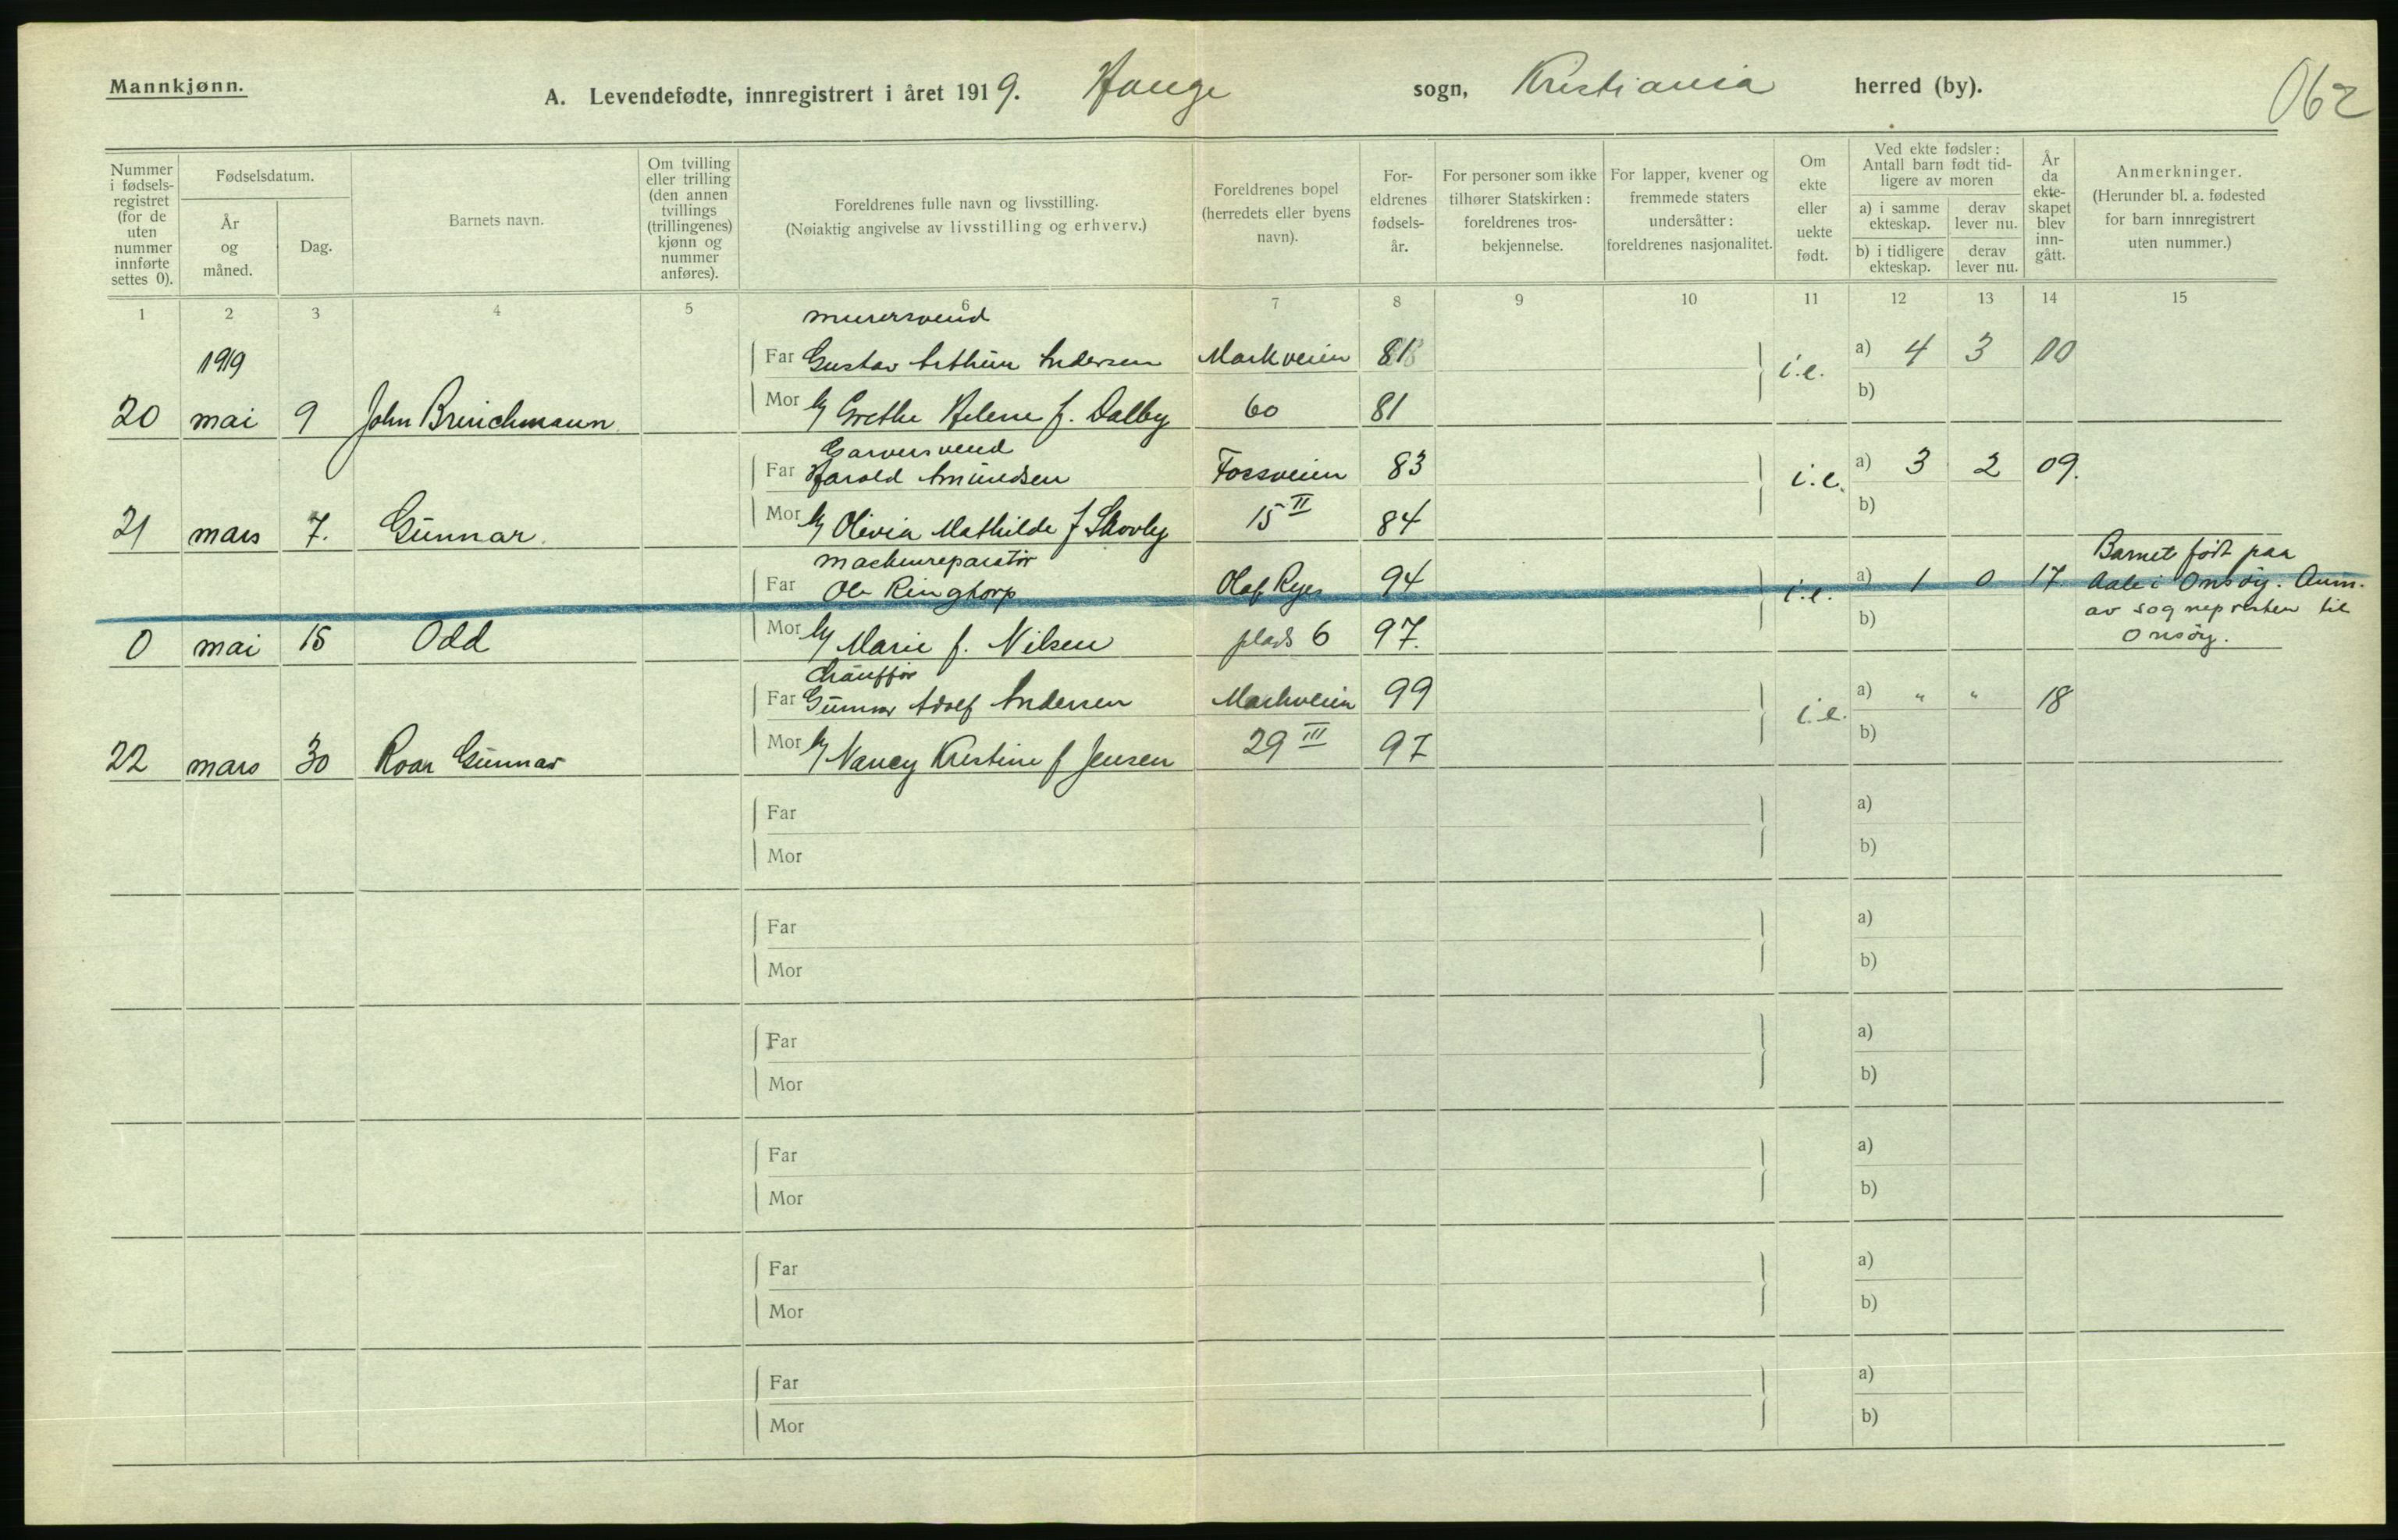 Mannkjønn.
A. Levendefødte, innregistrert i året 1919. Hauge sogn, Kristiania herred (by).
062
Nummer i fødsels-registret (for de uten nummer innførte settes 0).
Fødselsdatum.
År og måned.
Dag.
Barnets navn.
Om tvilling eller trilling (den annen tvillings (trillingenes) kjønn og nummer anføres).
Foreldrenes fulle navn og livsstilling.
(Nøiaktig angivelse av livsstilling og erhverv.)
Foreldrenes bopel (herredets eller byens navn).
For-eldrenes fødsels-år.
For personer som ikke tilhører Statskirken: foreldrenes tros-bekjennelse.
For lapper, kvener og fremmede staters undersåtter: foreldrenes nasjonalitet.
Om ekte eller uekte født.
Ved ekte fødsler: Antall barn født tid-ligere av moren
a) i samme ekteskap.
derav lever nu.
b) i tidligere ekteskap.
derav lever nu.
År da ekte-skapet blev inn-gått.
Anmerkninger.
(Herunder bl. a. fødested for barn innregistrert uten nummer.)
1 2 3 4 5 6 7 8 9 10 11 12 13 14 15
murersvend
1919 Far Gustav Arthur Andersen Markveien 81 i.e. a) 4 3 10
20 mai 9 John Brinichmann Mor Grethe Helene f. Dalby 60 81 b)
Garversvend
Far Harold Amundsen Fossveien 83 i.e. a) 3 2 09.
21 mars 7. Gunnar. Mor Olivia Mathilde f Skovly 15 II 84 b)
Maskinreparatør
Far Ole Ringhorp Olaf Ryes 94 i.e. a) 1 0 17. Barnet født paa Aale i Onsøy. Anm. av sogneprsten til Onsøy.
0 mai 15 Odd Mor Marie f. Nilsen plads 6 97. b)
Chauffør
Far Gunnar Adolf Andersen Markveien 99 i.e. a) " " 18
22 mars 30 Roar Gunnar Mor Nancy Kristine f Jensen 29 III 97 b)
Far a)
Mor b)
Far a)
Mor b)
Far a)
Mor b)
Far a)
Mor b)
Far a)
Mor b)
Far a)
Mor b)